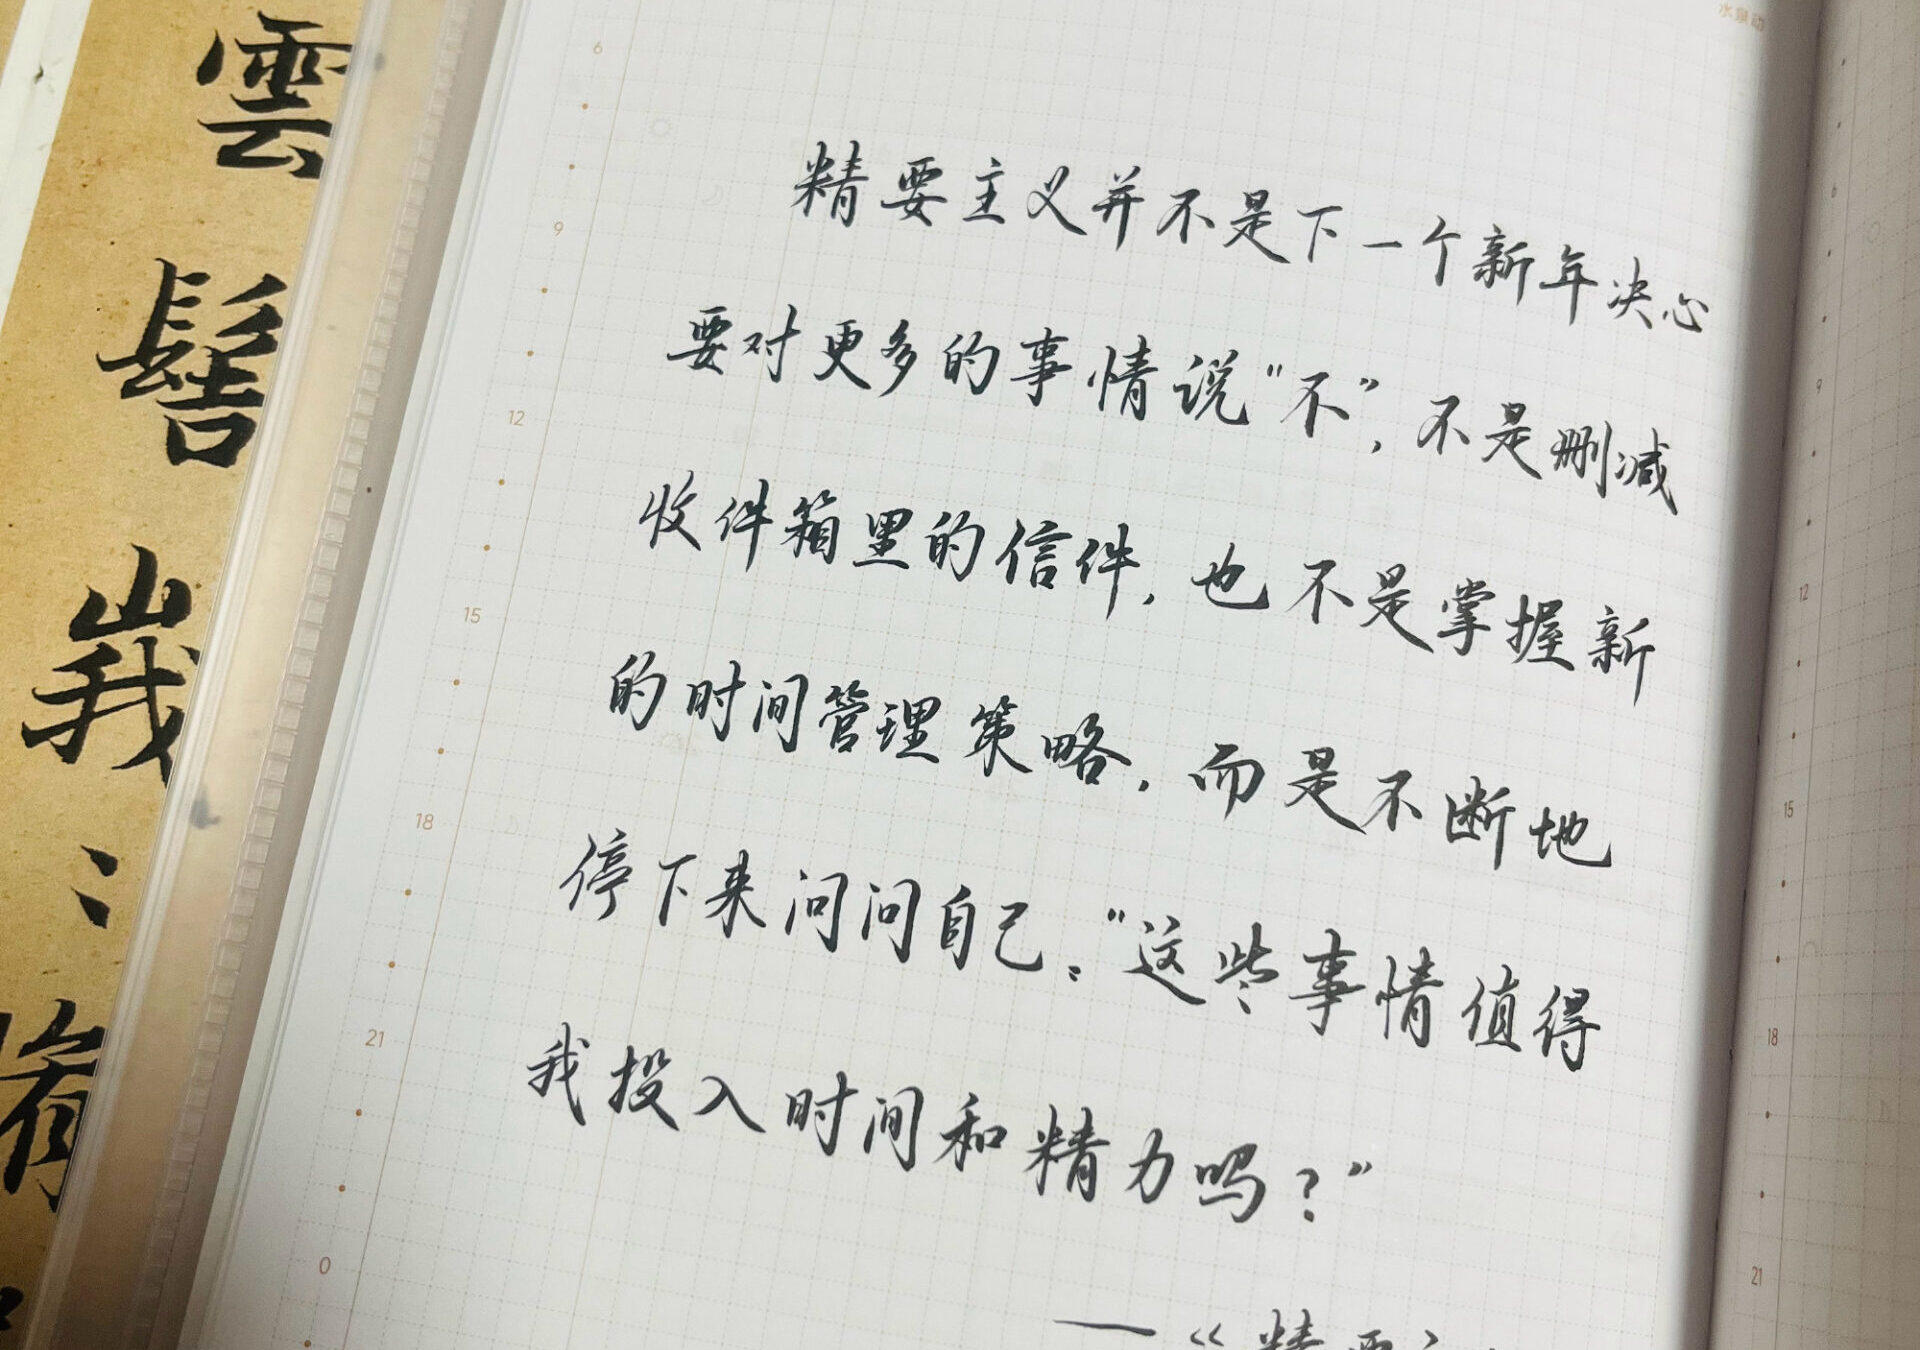 雲
髻
峩
峩
水泉动
精要主义并不是下一个新年决心
要对更多的事情说“不”，不是删减
收件箱里的信件，也不是掌握新
的时间管理策略，而是不断地
停下来问问自己：“这些事情值得
我投入时间和精力吗？”
——《精要主
6
9
12
15
18
21
0
9
12
15
18
21